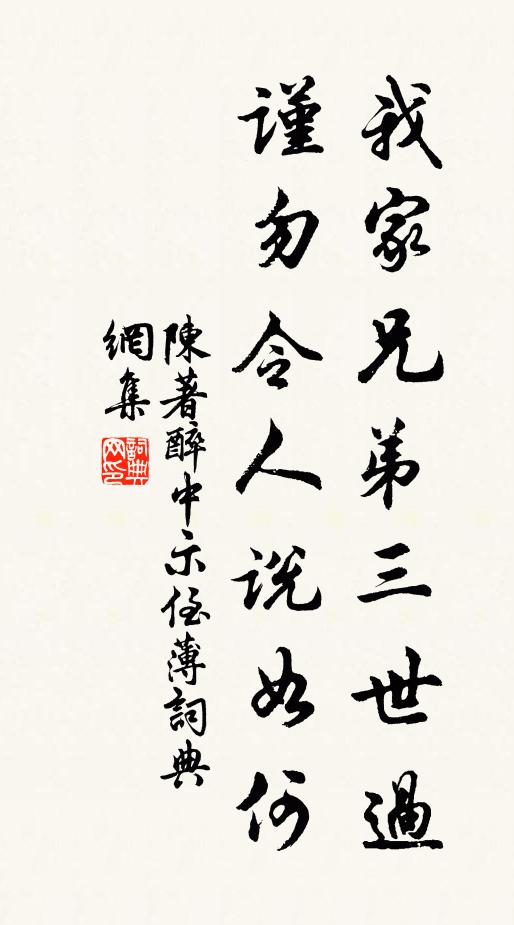 我家兄弟三世過
謹勿令人說如何
陳著醉中示侄薄詞典
網集
詞典網印